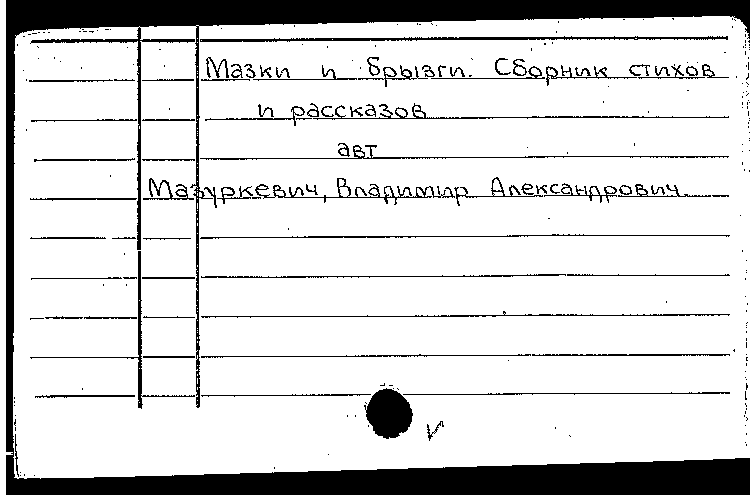 Мазки и брызги. Сборник стихов
и рассказов
авт
Мазуркевич, Владимир Александрович.